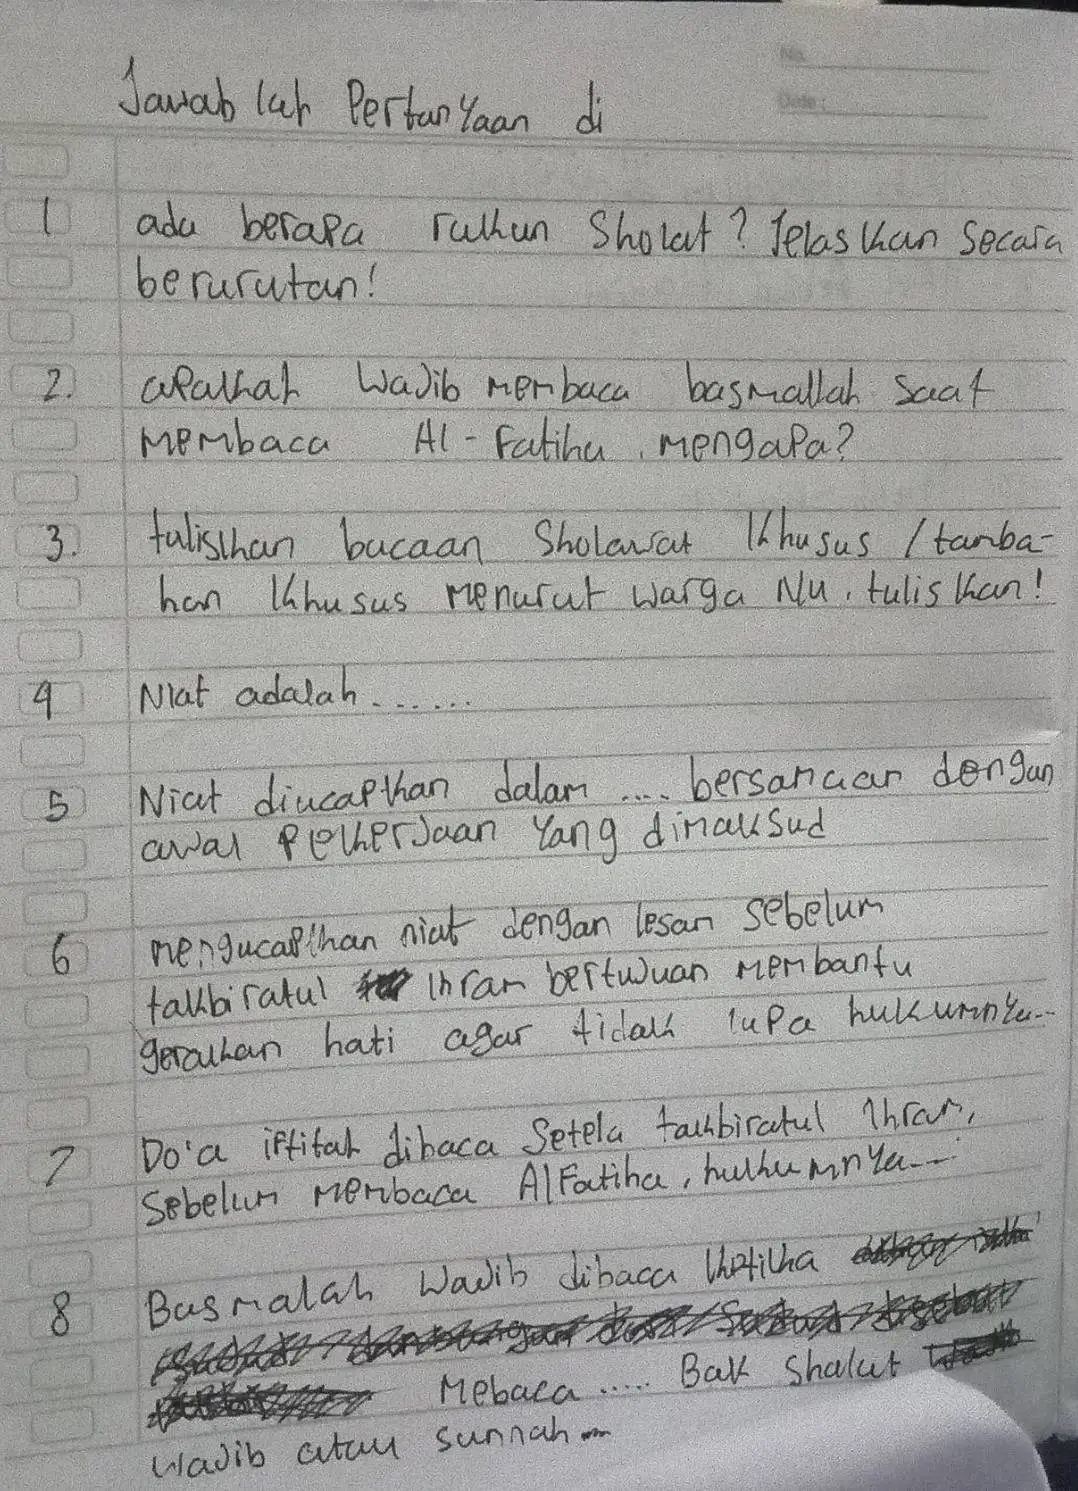 No.
Date:
Jawab lah Pertanyaan di
1 ada berapa rukun Sholat? Jelaskan Secara
berurutan!
2. apakah wajib membaca basmallah saat
membaca Al-Fatiha, mengapa?
3. tuliskan bacaan Sholawat khusus / tamba-
han khusus menurut warga Nu. tuliskan!
4 Niat adalah.......
5 Niat diucapkan dalam .... bersamaan dengan
awal pekerjaan yang dimaksud
6 mengucapkan niat dengan lesan sebelum
takbiratul Ihram bertujuan membantu
gerakan hati agar tidak lupa hukumnya...
7 Do'a iftitah dibaca Setela takbiratul Ihram,
Sebelum membaca AlFatiha, hukumnya....
8 Basmalah wajib dibaca ketika
Mebaca ..... Baik Shalat
wajib atau sunnah